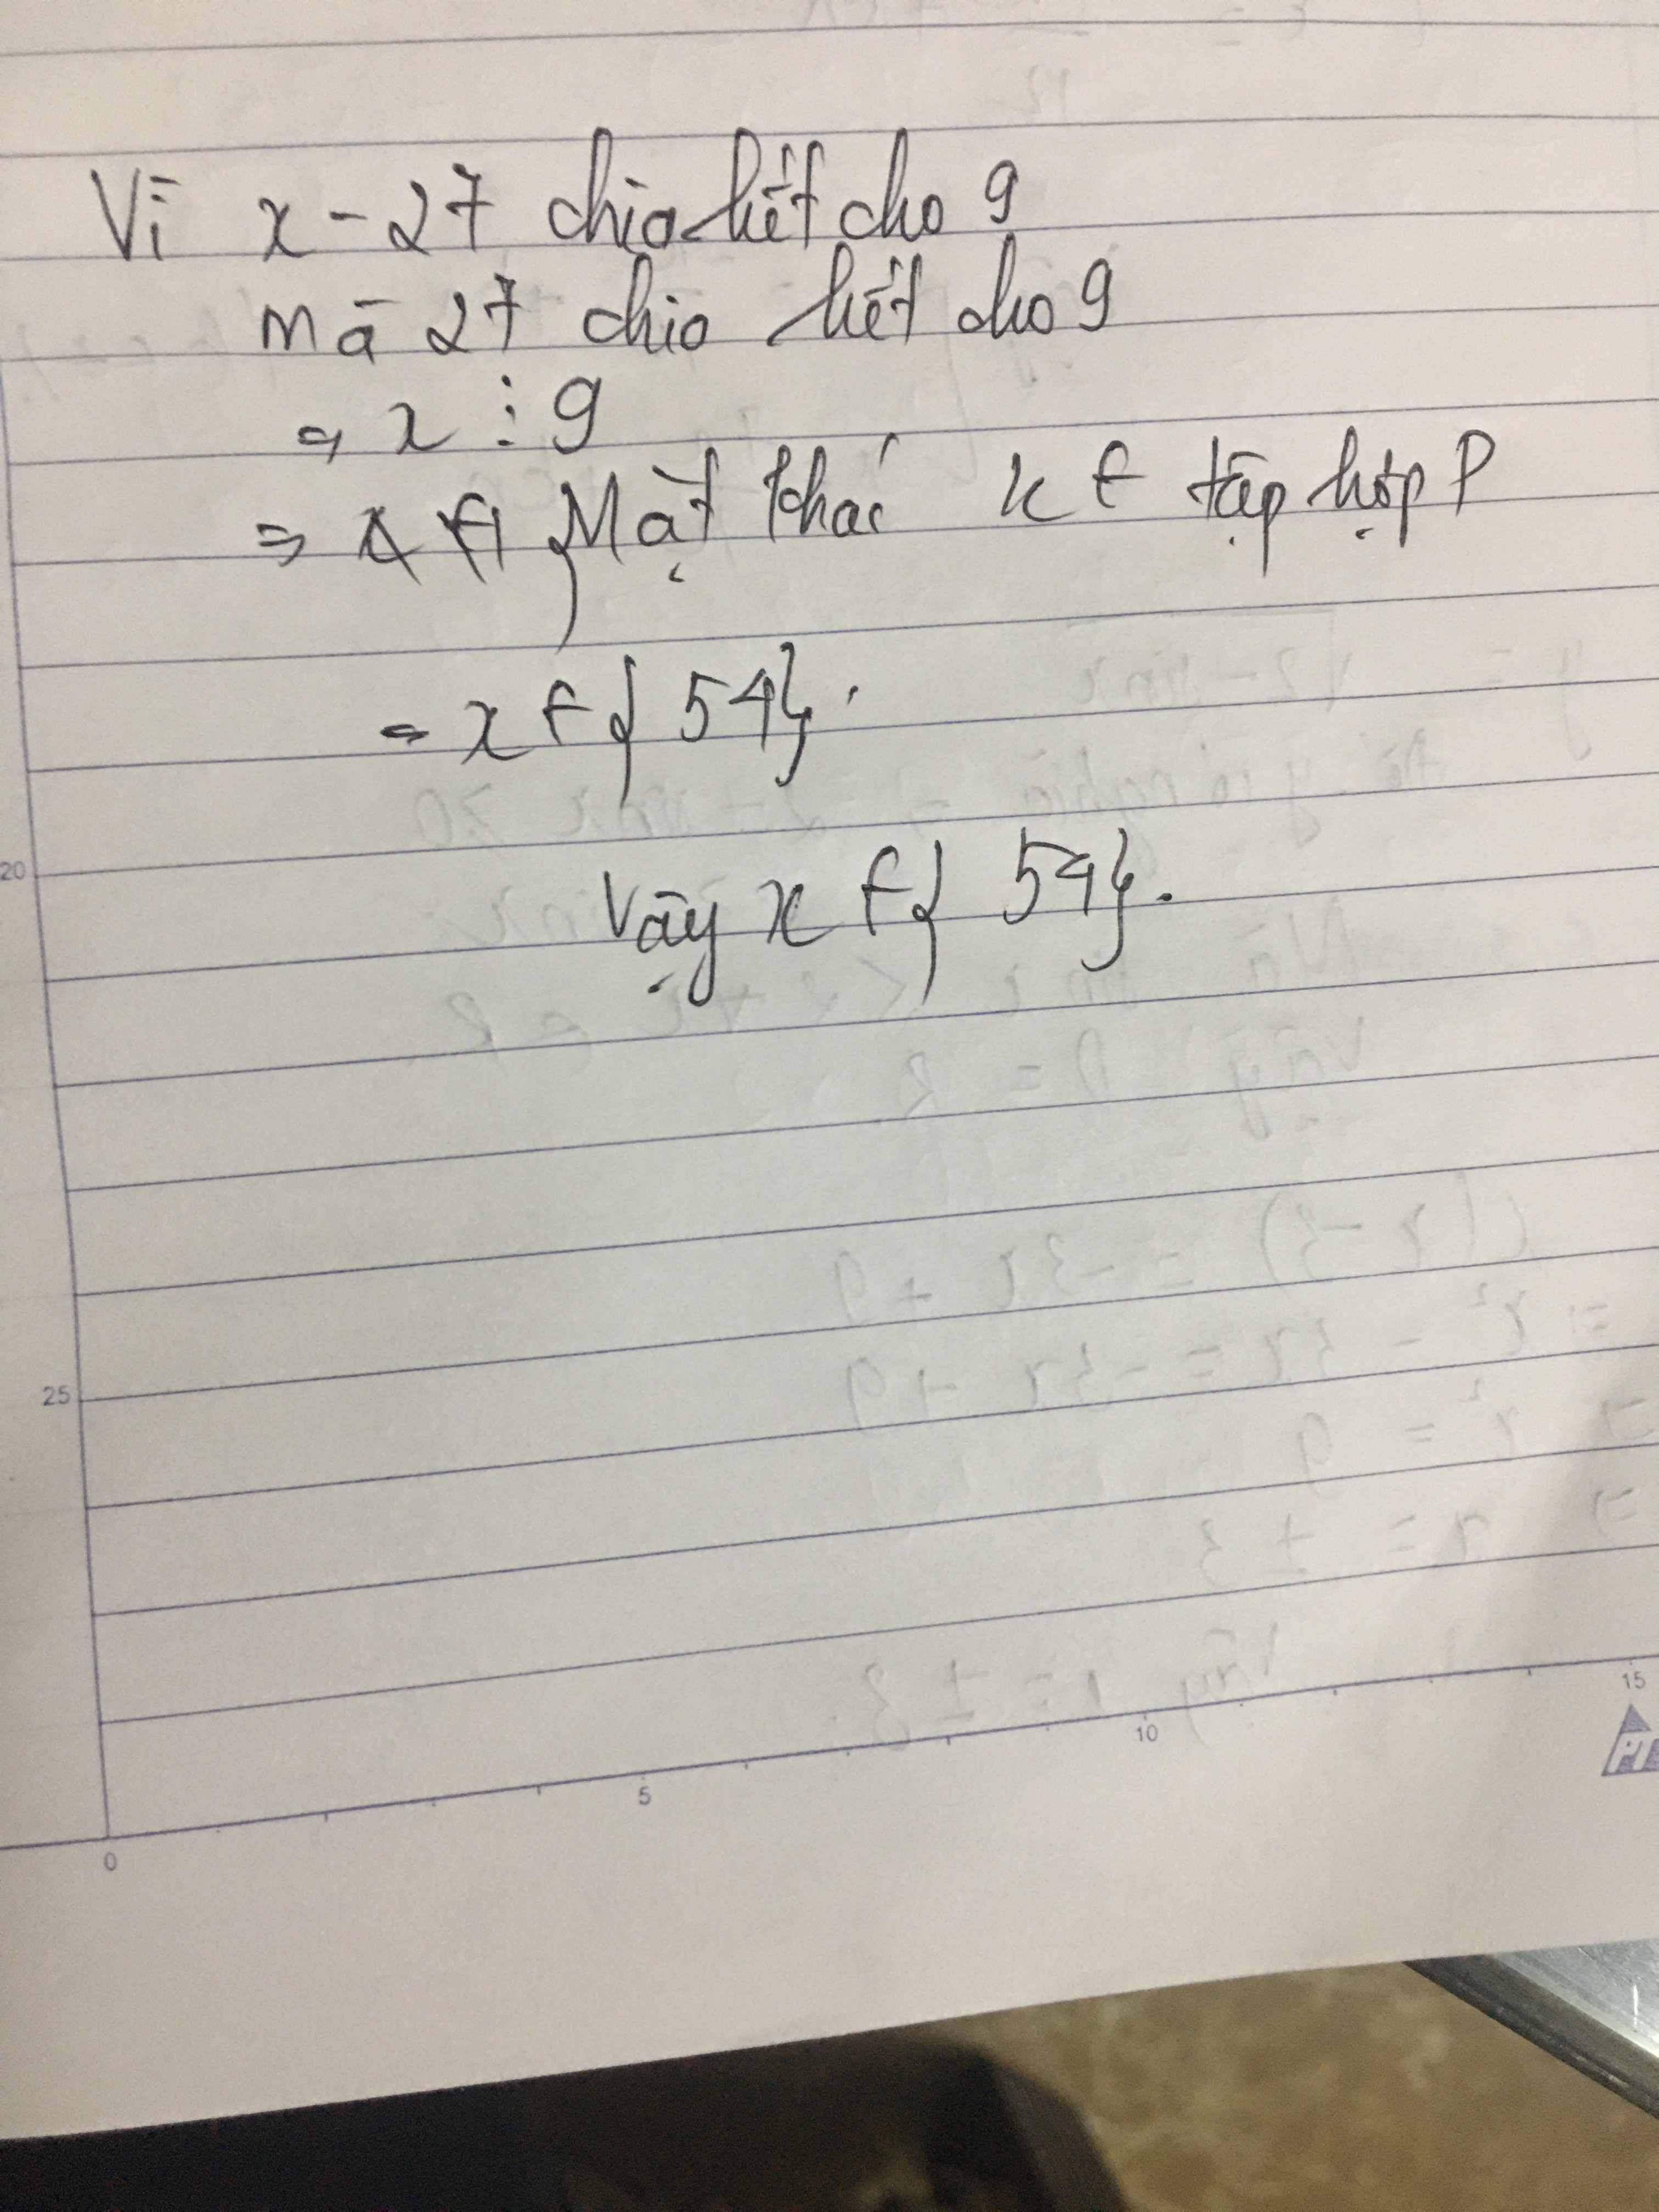 Vì x - 27 chia hết cho 9
mà 27 chia hết cho 9
⇒ x ⋮ 9
⇒ Mặt khác x ∈ tập hợp P
⇒ x ∈ { 54}.
Vậy x ∈ { 54}.
20
25
0
5
10
15